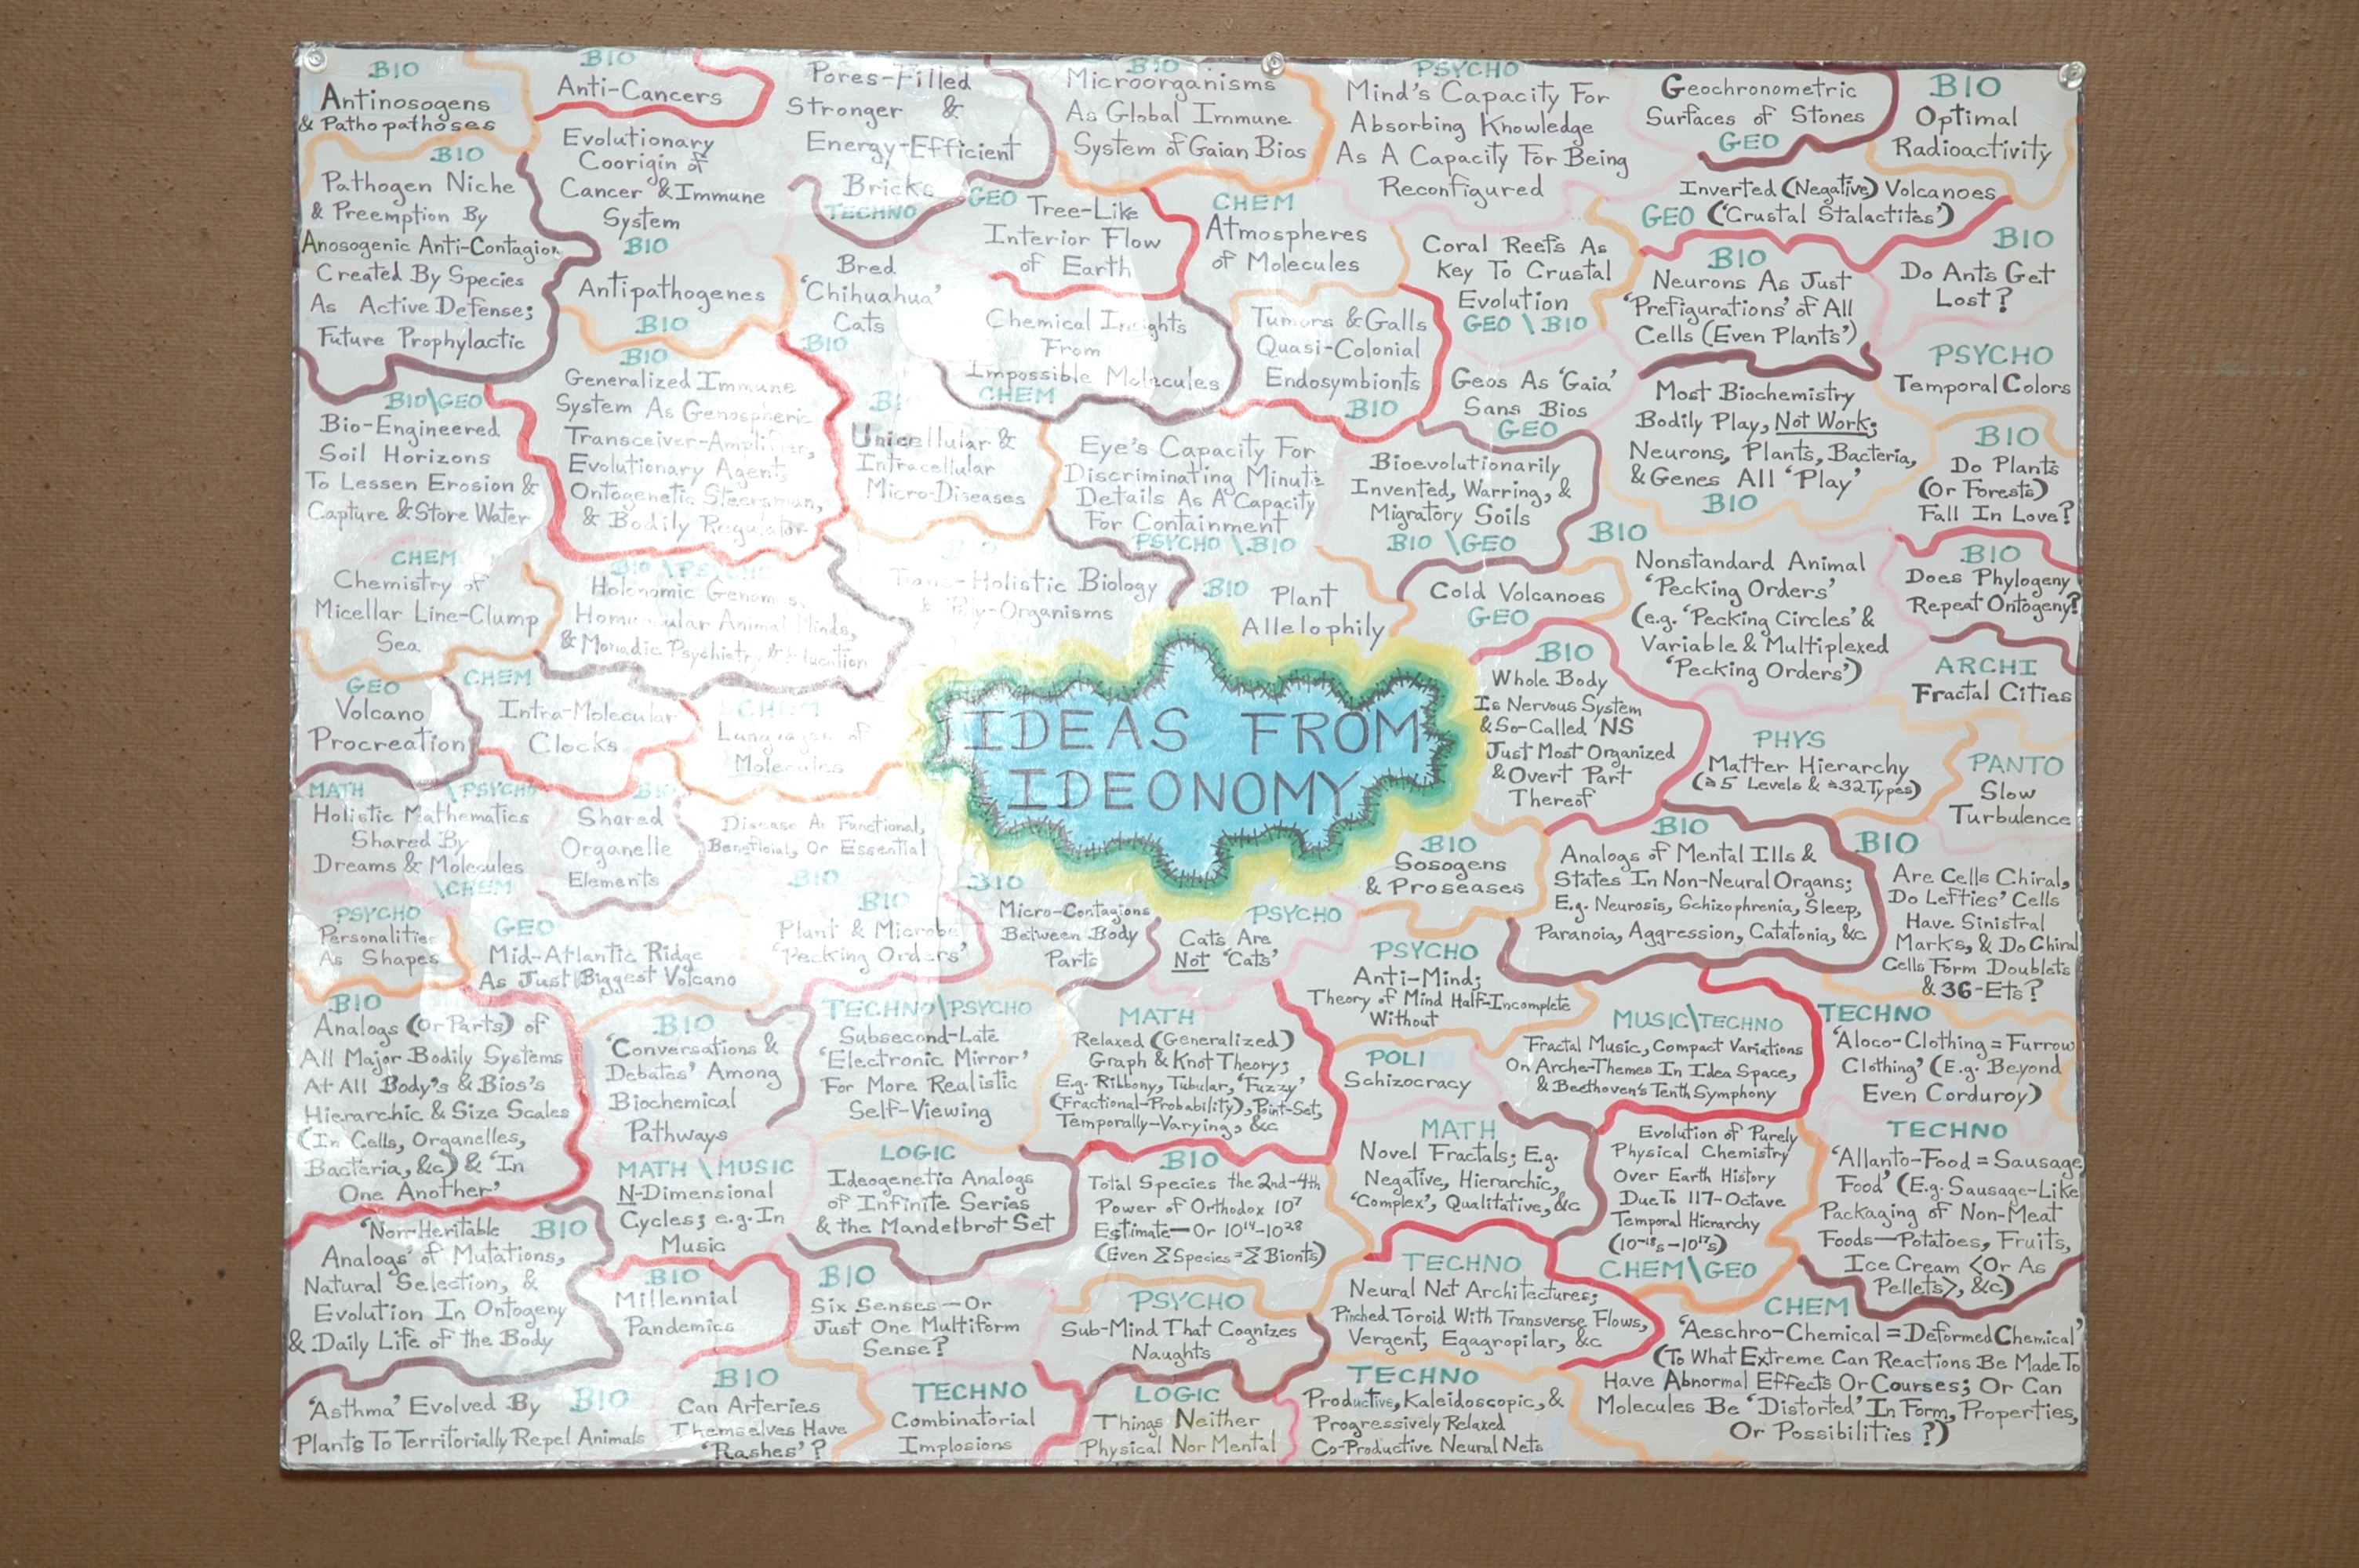 BIO
Antinosogens
& Pathopathoses
BIO
Anti-Cancers
Evolutionary
Coorigin of
Cancer & Immune
System
BIO
Pores-Filled
Stronger &
Energy-Efficient
Bricks
TECHNO
BIO
Microorganisms
As Global Immune
System of Gaian Bios
PSYCHO
Mind's Capacity For
Absorbing Knowledge
As A Capacity For Being
Reconfigured
Geochronometric
Surfaces of Stones
GEO
BIO
Optimal
Radioactivity
BIO
Pathogen Niche
& Preemption By
Anosogenic Anti-Contagion
Created By Species
As Active Defense;
Future Prophylactic
Antipathogenes
BIO
Bred
'Chihuahua'
Cats
BIO
GEO Tree-Like
Interior Flow
of Earth
CHEM
Atmospheres
of Molecules
Coral Reefs As
Key To Crustal
Evolution
GEO \ BIO
Inverted (Negative) Volcanoes
GEO ('Crustal Stalactites')
BIO
Neurons As Just
'Prefigurations' of All
Cells (Even Plants')
BIO
Do Ants Get
Lost?
Chemical Insights
From
Impossible Molecules
CHEM
Tumors & Galls
Quasi-Colonial
Endosymbionts
BIO
Geos As 'Gaia'
Sans Bios
GEO
Most Biochemistry
Bodily Play, Not Work;
Neurons, Plants, Bacteria,
& Genes All 'Play'
BIO
PSYCHO
Temporal Colors
BIO\GEO
Bio-Engineered
Soil Horizons
To Lessen Erosion &
Capture & Store Water
BIO
Generalized Immune
System As Genospheric
Transceiver-Amplifier,
Evolutionary Agent,
Ontogenetic Steersman,
& Bodily Regulator
BIO
Unicellular &
Intracellular
Micro-Diseases
Eye's Capacity For
Discriminating Minute
Details As A Capacity
For Containment
PSYCHO \ BIO
Bioevolutionarily
Invented, Warring, &
Migratory Soils
BIO \GEO
BIO
Do Plants
(Or Forests)
Fall In Love?
CHEM
Chemistry of
Micellar Line-Clump
Sea
BIO \PSYCHO
Holonomic Genomes,
Homuncular Animal Minds,
& Monadic Psychiatry & Education
BIO
Trans-Holistic Biology
& Poly-Organisms
BIO Plant
Allelophily
Cold Volcanoes
GEO
BIO
Nonstandard Animal
'Pecking Orders'
(e.g. 'Pecking Circles' &
Variable & Multiplexed
'Pecking Orders')
BIO
Does Phylogeny
Repeat Ontogeny?
ARCHI
Fractal Cities
GEO
Volcano
Procreation
CHEM
Intra-Molecular
Clocks
CHEM
Languages of
Molecules
IDEAS FROM
IDEONOMY
BIO
Whole Body
Is Nervous System
& So-Called NS
Just Most Organized
& Overt Part
Thereof
PHYS
Matter Hierarchy
(≥5 Levels & ≥32 Types)
PANTO
Slow
Turbulence
MATH \PSYCHO
Holistic Mathematics
Shared By
Dreams & Molecules
\CHEM
BIO
Shared
Organelle
Elements
Disease As Functional,
Beneficial, Or Essential
BIO
BIO
Sosogens
& Proseases
BIO
Analogs of Mental Ills &
States In Non-Neural Organs;
E.g. Neurosis, Schizophrenia, Sleep,
Paranoia, Aggression, Catatonia, &c
BIO
Are Cells Chiral,
Do Lefties' Cells
Have Sinistral
Marks, & Do Chiral
Cells Form Doublets
& 36-Ets?
PSYCHO
Personalities
As Shapes
GEO
Mid-Atlantic Ridge
As Just Biggest Volcano
BIO
Plant & Microbe
'Pecking Orders'
BIO
Micro-Contagions
Between Body
Parts
PSYCHO
Cats Are
Not 'Cats'
PSYCHO
Anti-Mind;
Theory of Mind Half-Incomplete
Without
BIO
Analogs (Or Parts) of
All Major Bodily Systems
At All Body's & Bios's
Hierarchic & Size Scales
(In Cells, Organelles,
Bacteria, &c) & 'In
One Another'
BIO
'Conversations &
Debates' Among
Biochemical
Pathways
TECHNO\PSYCHO
Subsecond-Late
'Electronic Mirror'
For More Realistic
Self-Viewing
MATH
Relaxed (Generalized)
Graph & Knot Theory;
E.g. Ribbony, Tubular, 'Fuzzy'
(Fractional-Probability), Point-Set,
Temporally-Varying, &c
POLI
Schizocracy
MUSIC\TECHNO
Fractal Music, Compact Variations
On Arche-Themes In Idea Space,
& Beethoven's Tenth Symphony
TECHNO
'Aloco-Clothing = Furrow
Clothing' (E.g. Beyond
Even Corduroy)
MATH \ MUSIC
N-Dimensional
Cycles; e.g. In
Music
LOGIC
Ideogenetic Analogs
of Infinite Series
& the Mandelbrot Set
BIO
Total Species the 2nd-4th
Power of Orthodox 10⁷
Estimate—Or 10¹⁴-10²⁸
(Even ΣSpecies = ΣBionts)
MATH
Novel Fractals; E.g.
Negative, Hierarchic,
'Complex', Qualitative, &c
Evolution of Purely
Physical Chemistry
Over Earth History
Due To 117-Octave
Temporal Hierarchy
(10⁻¹⁸s-10¹⁷s)
CHEM\GEO
TECHNO
'Allanto-Food = Sausage
Food' (E.g. Sausage-Like
Packaging of Non-Meat
Foods—Potatoes, Fruits,
Ice Cream <Or As
Pellets>, &c)
'Non-Heritable BIO
Analogs' of Mutations,
Natural Selection, &
Evolution In Ontogeny
& Daily Life of the Body
BIO
Millennial
Pandemics
BIO
Six Senses—Or
Just One Multiform
Sense?
PSYCHO
Sub-Mind That Cognizes
Naughts
TECHNO
Neural Net Architectures;
Pinched Toroid With Transverse Flows,
Vergent, Egagropilar, &c
CHEM
'Aeschro-Chemical = Deformed Chemical'
(To What Extreme Can Reactions Be Made To
Have Abnormal Effects Or Courses; Or Can
Molecules Be 'Distorted' In Form, Properties,
Or Possibilities?)
'Asthma' Evolved By BIO
Plants To Territorially Repel Animals
BIO
Can Arteries
Themselves Have
'Rashes'?
TECHNO
Combinatorial
Implosions
LOGIC
Things Neither
Physical Nor Mental
TECHNO
Productive, Kaleidoscopic, &
Progressively Relaxed
Co-Productive Neural Nets